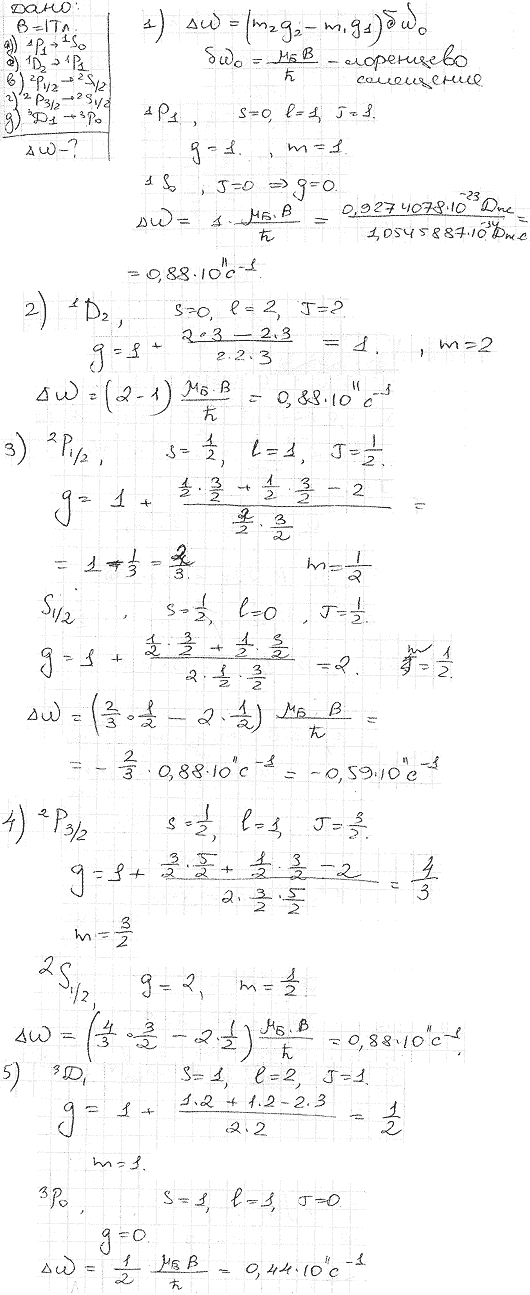 Дано:
B=1Тл.
а) ¹P₁→¹S₀
б) ¹D₂→¹P₁
в) ²P₁/₂→²S₁/₂
г) ²P₃/₂→²S₁/₂
д) ³D₁→³P₀
Δω-?
1) Δω = (m₂g₂ - m₁g₁) δω₀
δω₀ = μБ B / ħ - лоренцево
смещение
¹P₁, s=0, l=1, J=1.
g=1. , m=1.
¹S₀, J=0 ⇒ g=0.
Δω = 1·μБ·B / ħ = 0,9274078·10⁻²³ Дж / 1,0545887·10⁻³⁴ Дж·с =
= 0,88·10¹¹ с⁻¹.
2) ¹D₂, s=0, l=2, J=2
g = 1 + (2·3 - 2·3) / (2·2·3) = 1. , m=2
Δω = (2-1) μБ·B / ħ = 0,88·10¹¹ с⁻¹
3) ²P₁/₂, s=1/2, l=1, J=1/2.
g = 1 + (1/2·3/2 + 1/2·3/2 - 2) / (2/2·3/2) =
= 1 - 1/3 = 2/3. m=1/2
S₁/₂, s=1/2, l=0, J=1/2.
g = 1 + (1/2·3/2 + 1/2·3/2) / (2·1/2·3/2) = 2. m=1/2.
Δω = (2/3·1/2 - 2·1/2) μБ B / ħ =
= - 2/3·0,88·10¹¹ с⁻¹ = -0,59·10¹¹ с⁻¹
4) ²P₃/₂ s=1/2, l=1, J=3/2.
g = 1 + (3/2·5/2 + 1/2·3/2 - 2) / (2·3/2·5/2) = 4/3
m = 3/2
2S₁/₂, g=2, m=1/2
Δω = (4/3·3/2 - 2·1/2) μБ·B / ħ = 0,88·10¹¹ с⁻¹.
5) ³D₁ s=1, l=2, J=1.
g = 1 + (1·2 + 1·2 - 2·3) / (2·2) = 1/2
m=1.
³P₀, s=1, l=1, J=0
g=0
Δω = 1/2 μБ B / ħ = 0,44·10¹¹ с⁻¹